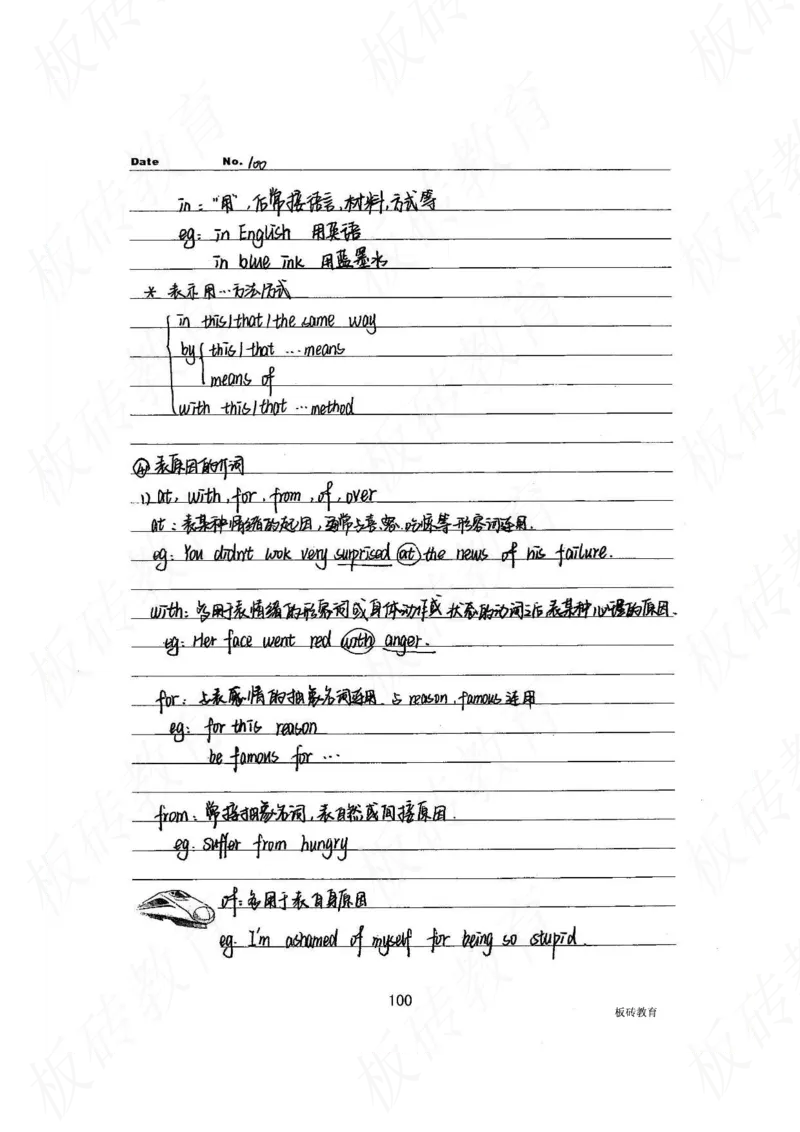 Date No. 100
in："用"，后常接语言，材料，方式等
eg：in English 用英语
in blue ink 用蓝墨水
* 表示用…方法/方式
in this/that/the same way
by this/that …means
means of
with this/that …method
④ 表原因的介词
1) at, with, for, from, of, over
at：表某种情绪的起因，通常与喜、怒、吃惊等形容词连用.
eg：You didn't wok very surprised at the news of his failure.
with：多用于表情绪的形容词或身体动作或状态的动词之后表某种心理的原因.
eg：Her face went red with anger.
for：与表感情的抽象名词连用、与 reason, famous 连用
eg：for this reason
be famous for …
from：常接抽象名词，表自然或间接原因.
eg. suffer from hungry
of：多用于表自身原因
eg. I'm ashamed of myself for being so stupid.
100
板砖教育